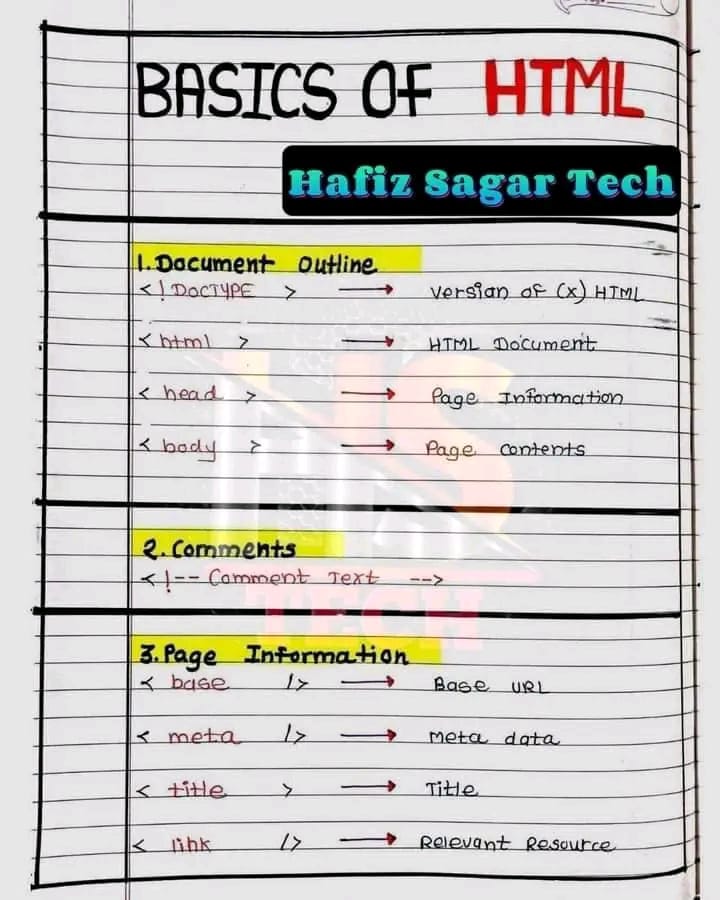 BASICS OF HTML
Hafiz Sagar Tech
1. Document Outline
<! DOCTYPE > → Version of (x) HTML
< html > → HTML Document
< head > → Page Information
< body > → Page contents
HS
TECH
2. Comments
<!-- Comment Text -->
3. Page Information
< base /> → Base URL
< meta /> → Meta data
< title > → Title
< link /> → Relevant Resource